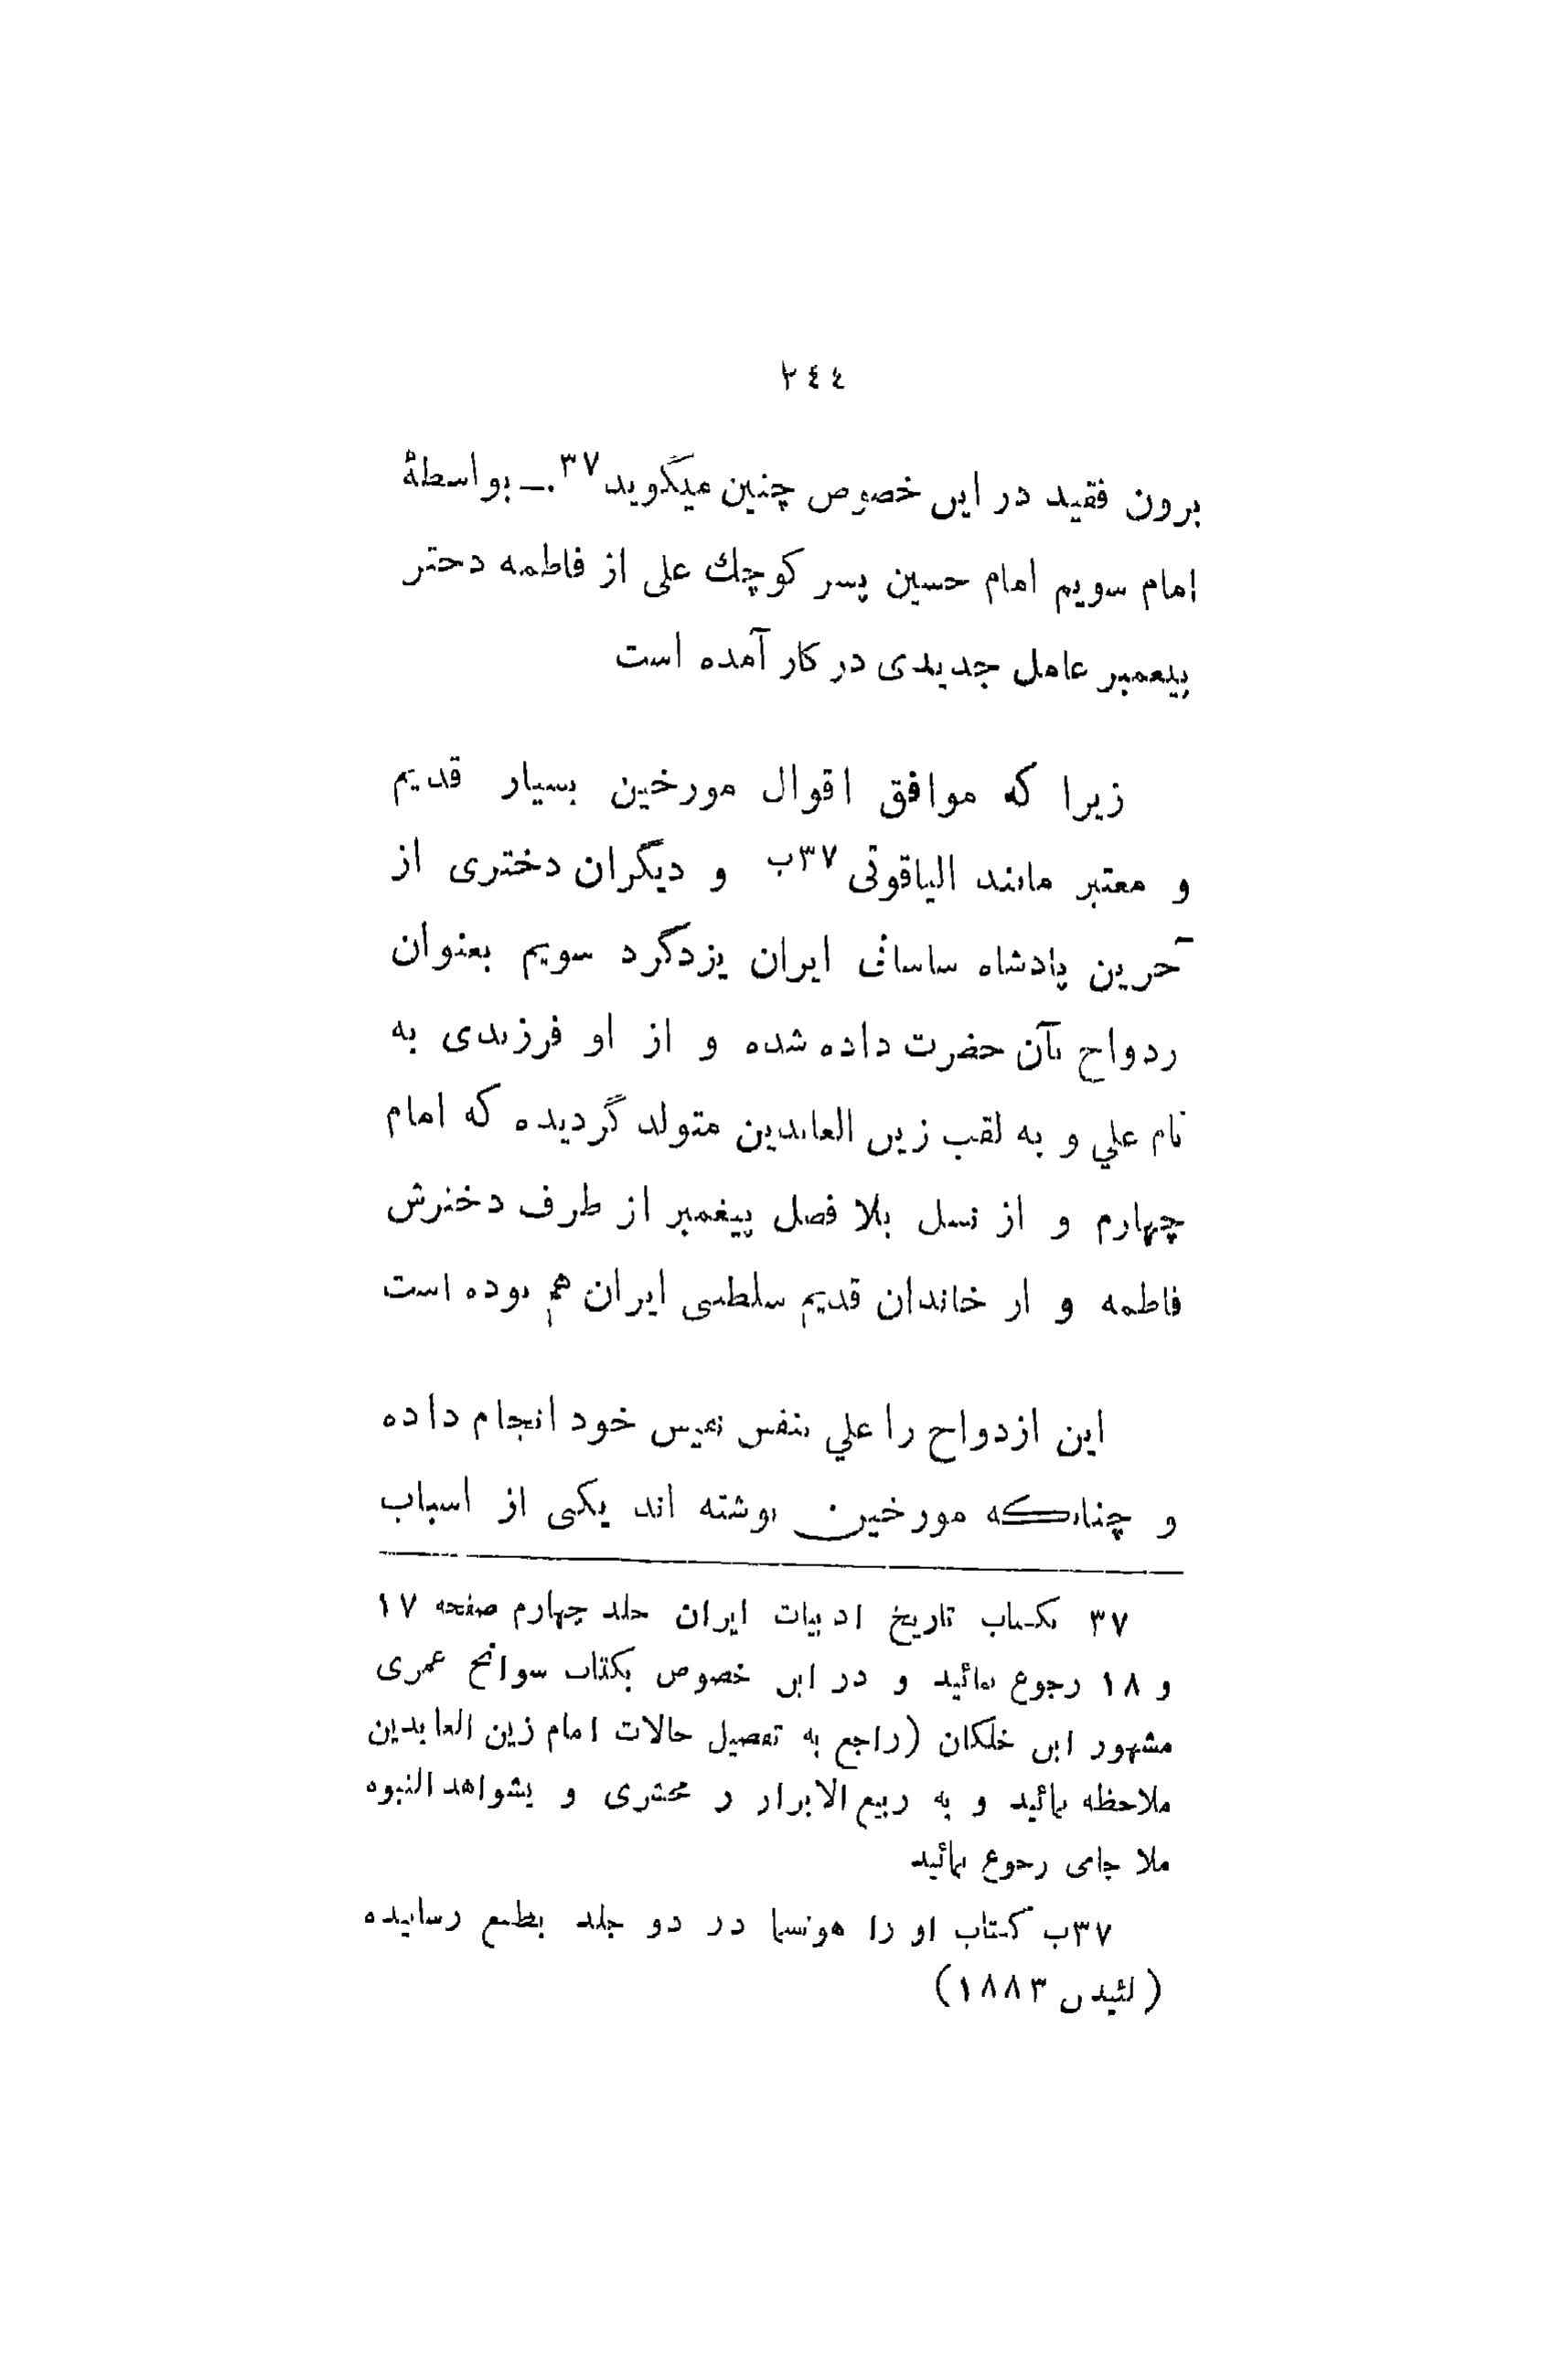 ٢٤٤
برون فقید در این خصوص چنین میگوید ۳۷ .ـ بواسطهٔ
امام سویم امام حسین پسر کوچك علی از فاطمه دختر
پیغمبر عامل جدیدی در کار آمده است
زیرا که موافق اقوال مورخین بسیار قدیم
و معتبر مانند الیاقوتی ۳۷ب و دیگران دختری از
آخرین پادشاه ساسانی ایران یزدگرد سویم بعنوان
ردواج بآن حضرت داده شده و از او فرزندی به
نام علي و به لقب زین العابدین متولد گردیده که امام
چهارم و از نسل بلا فصل پیغمبر از طرف دخترش
فاطمه و از خاندان قدیم سلطنتی ایران هم بوده است
این ازدواج را علي بنفس نفیس خود انجام داده
و چنانکه مورخین نوشته اند یکی از اسباب
۳۷ بکتاب تاریخ ادبیات ایران جلد چهارم صفحه ۱۷
و ۱۸ رجوع نمائید و در این خصوص بکتاب سوانح عمری
مشهور ابن خلکان (راجع به تفصیل حالات امام زین العابدین
ملاحظه نمائید و به ربیع الابرار ز مخشری و بشواهد النبوه
ملا جامی رجوع نمائید
۳۷ب کتاب او را هوتسما در دو جلد بطبع رسانیده
(لئیدن ۱۸۸۳)